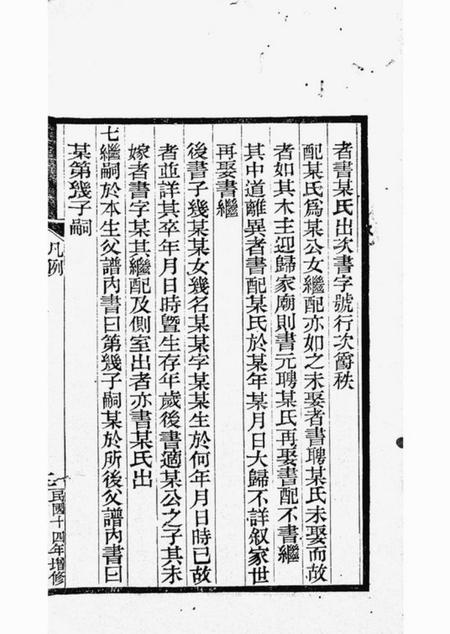 者書某氏出次書字號行次爵秩
配某氏爲某公女繼配亦如之未娶者書聘某氏未娶而故
者如其木主迎歸家廟則書元聘某氏再娶書配不書繼
其中道離異者書配某氏於某年某月日大歸不詳叙家世
再娶書繼
後書子幾某某女幾名某某字某某生於何年月日時已故
者並詳其卒年月日時暨生存年歲後書適某公之子其未
嫁者書字某其繼配及側室出者亦書某氏出
七繼嗣於本生父譜內書曰第幾子嗣某於所後父譜內書曰
某第幾子嗣
凡例
民國十四年增修